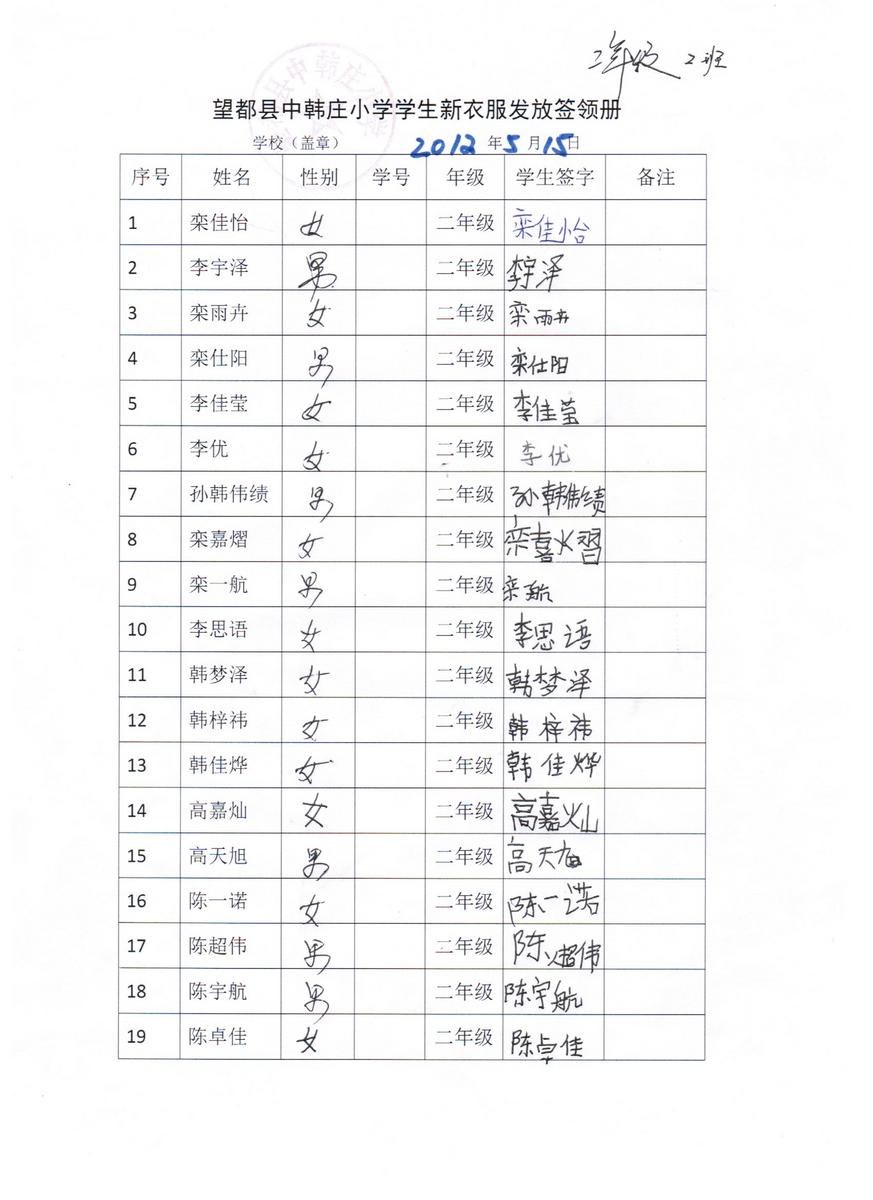 二年级 2班
望都县中韩庄小学学生新衣服发放签领册
学校（盖章） 2012 年 5 月 15 日
序号 姓名 性别 学号 年级 学生签字 备注
1 栾佳怡 女 二年级 栾佳怡
2 李宇泽 男 二年级 李宇泽
3 栾雨卉 女 二年级 栾雨卉
4 栾仕阳 男 二年级 栾仕阳
5 李佳莹 女 二年级 李佳莹
6 李优 女 二年级 李优
7 孙韩伟绩 男 二年级 孙韩伟绩
8 栾嘉熠 女 二年级 栾嘉熠
9 栾一航 男 二年级 栾一航
10 李思语 女 二年级 李思语
11 韩梦泽 女 二年级 韩梦泽
12 韩梓祎 女 二年级 韩梓祎
13 韩佳烨 女 二年级 韩佳烨
14 高嘉灿 女 二年级 高嘉灿
15 高天旭 男 二年级 高天旭
16 陈一诺 女 二年级 陈一诺
17 陈超伟 男 二年级 陈超伟
18 陈宇航 男 二年级 陈宇航
19 陈卓佳 女 二年级 陈卓佳